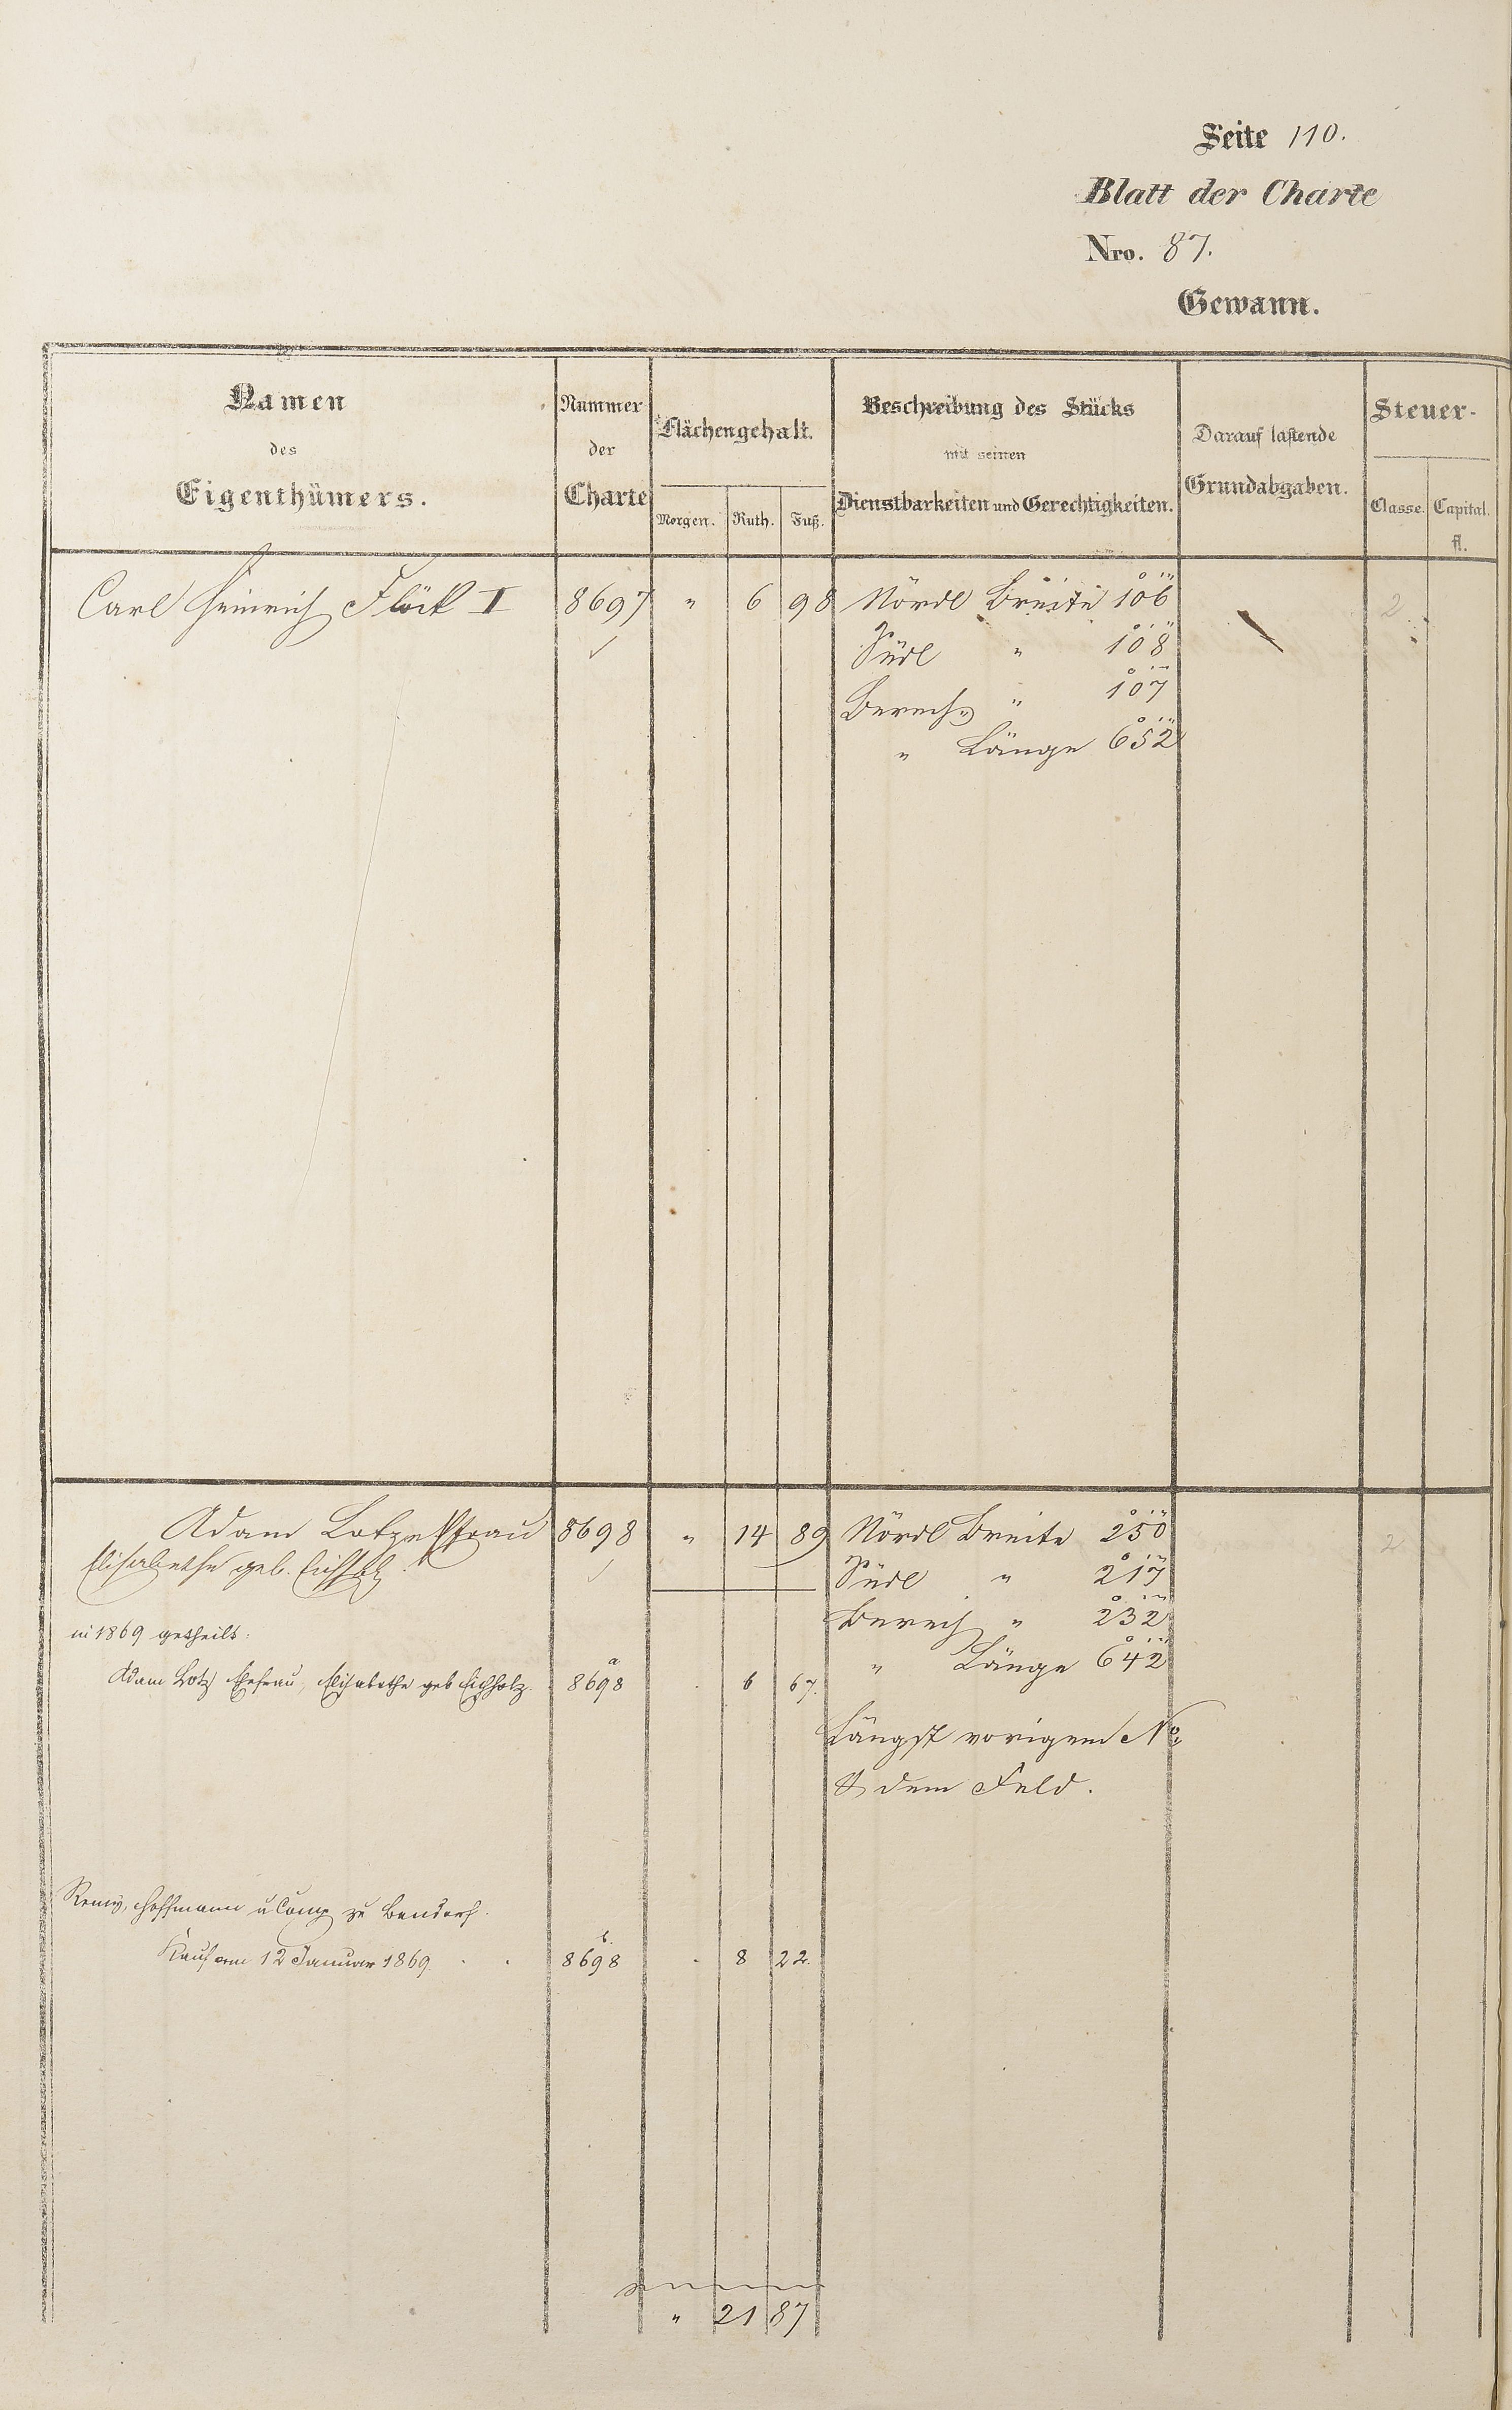 Seite 110.
Blatt der Charte
Nro. 87.
Gewann.
Namen
des
Eigenthümers.
Nummer
der
Charte
Flächengehalt.
Morgen. Ruth. Fuß.
Beschreibung des Stücks
mit seinen
Dienstbarkeiten und Gerechtigkeiten.
Darauf lastende
Grundabgaben.
Steuer-
Classe. Capital.
fl.
Carl Heinrich Flöck I 8697 " 6 98 Nördl Breite 106 2
Südl " 108
Berech " 107
" Länge 652
Adam Lotz Ehefrau 8698 " 14 89 Nördl Breite 250 2
Elisabethe geb. Eichholz Südl " 217
Berech " 232
in 1869 getheilt:
" Länge 642
Adam Lotz Ehefrau, Elisabethe geb Eichholz. 8698a 6 67.
Längst vorigem No
& dem Feld.
Remy, Hoffmann u Comp zu Bendorf.
Kauf vom 12 Januar 1869. 8698b. 8 22.
" 21 87